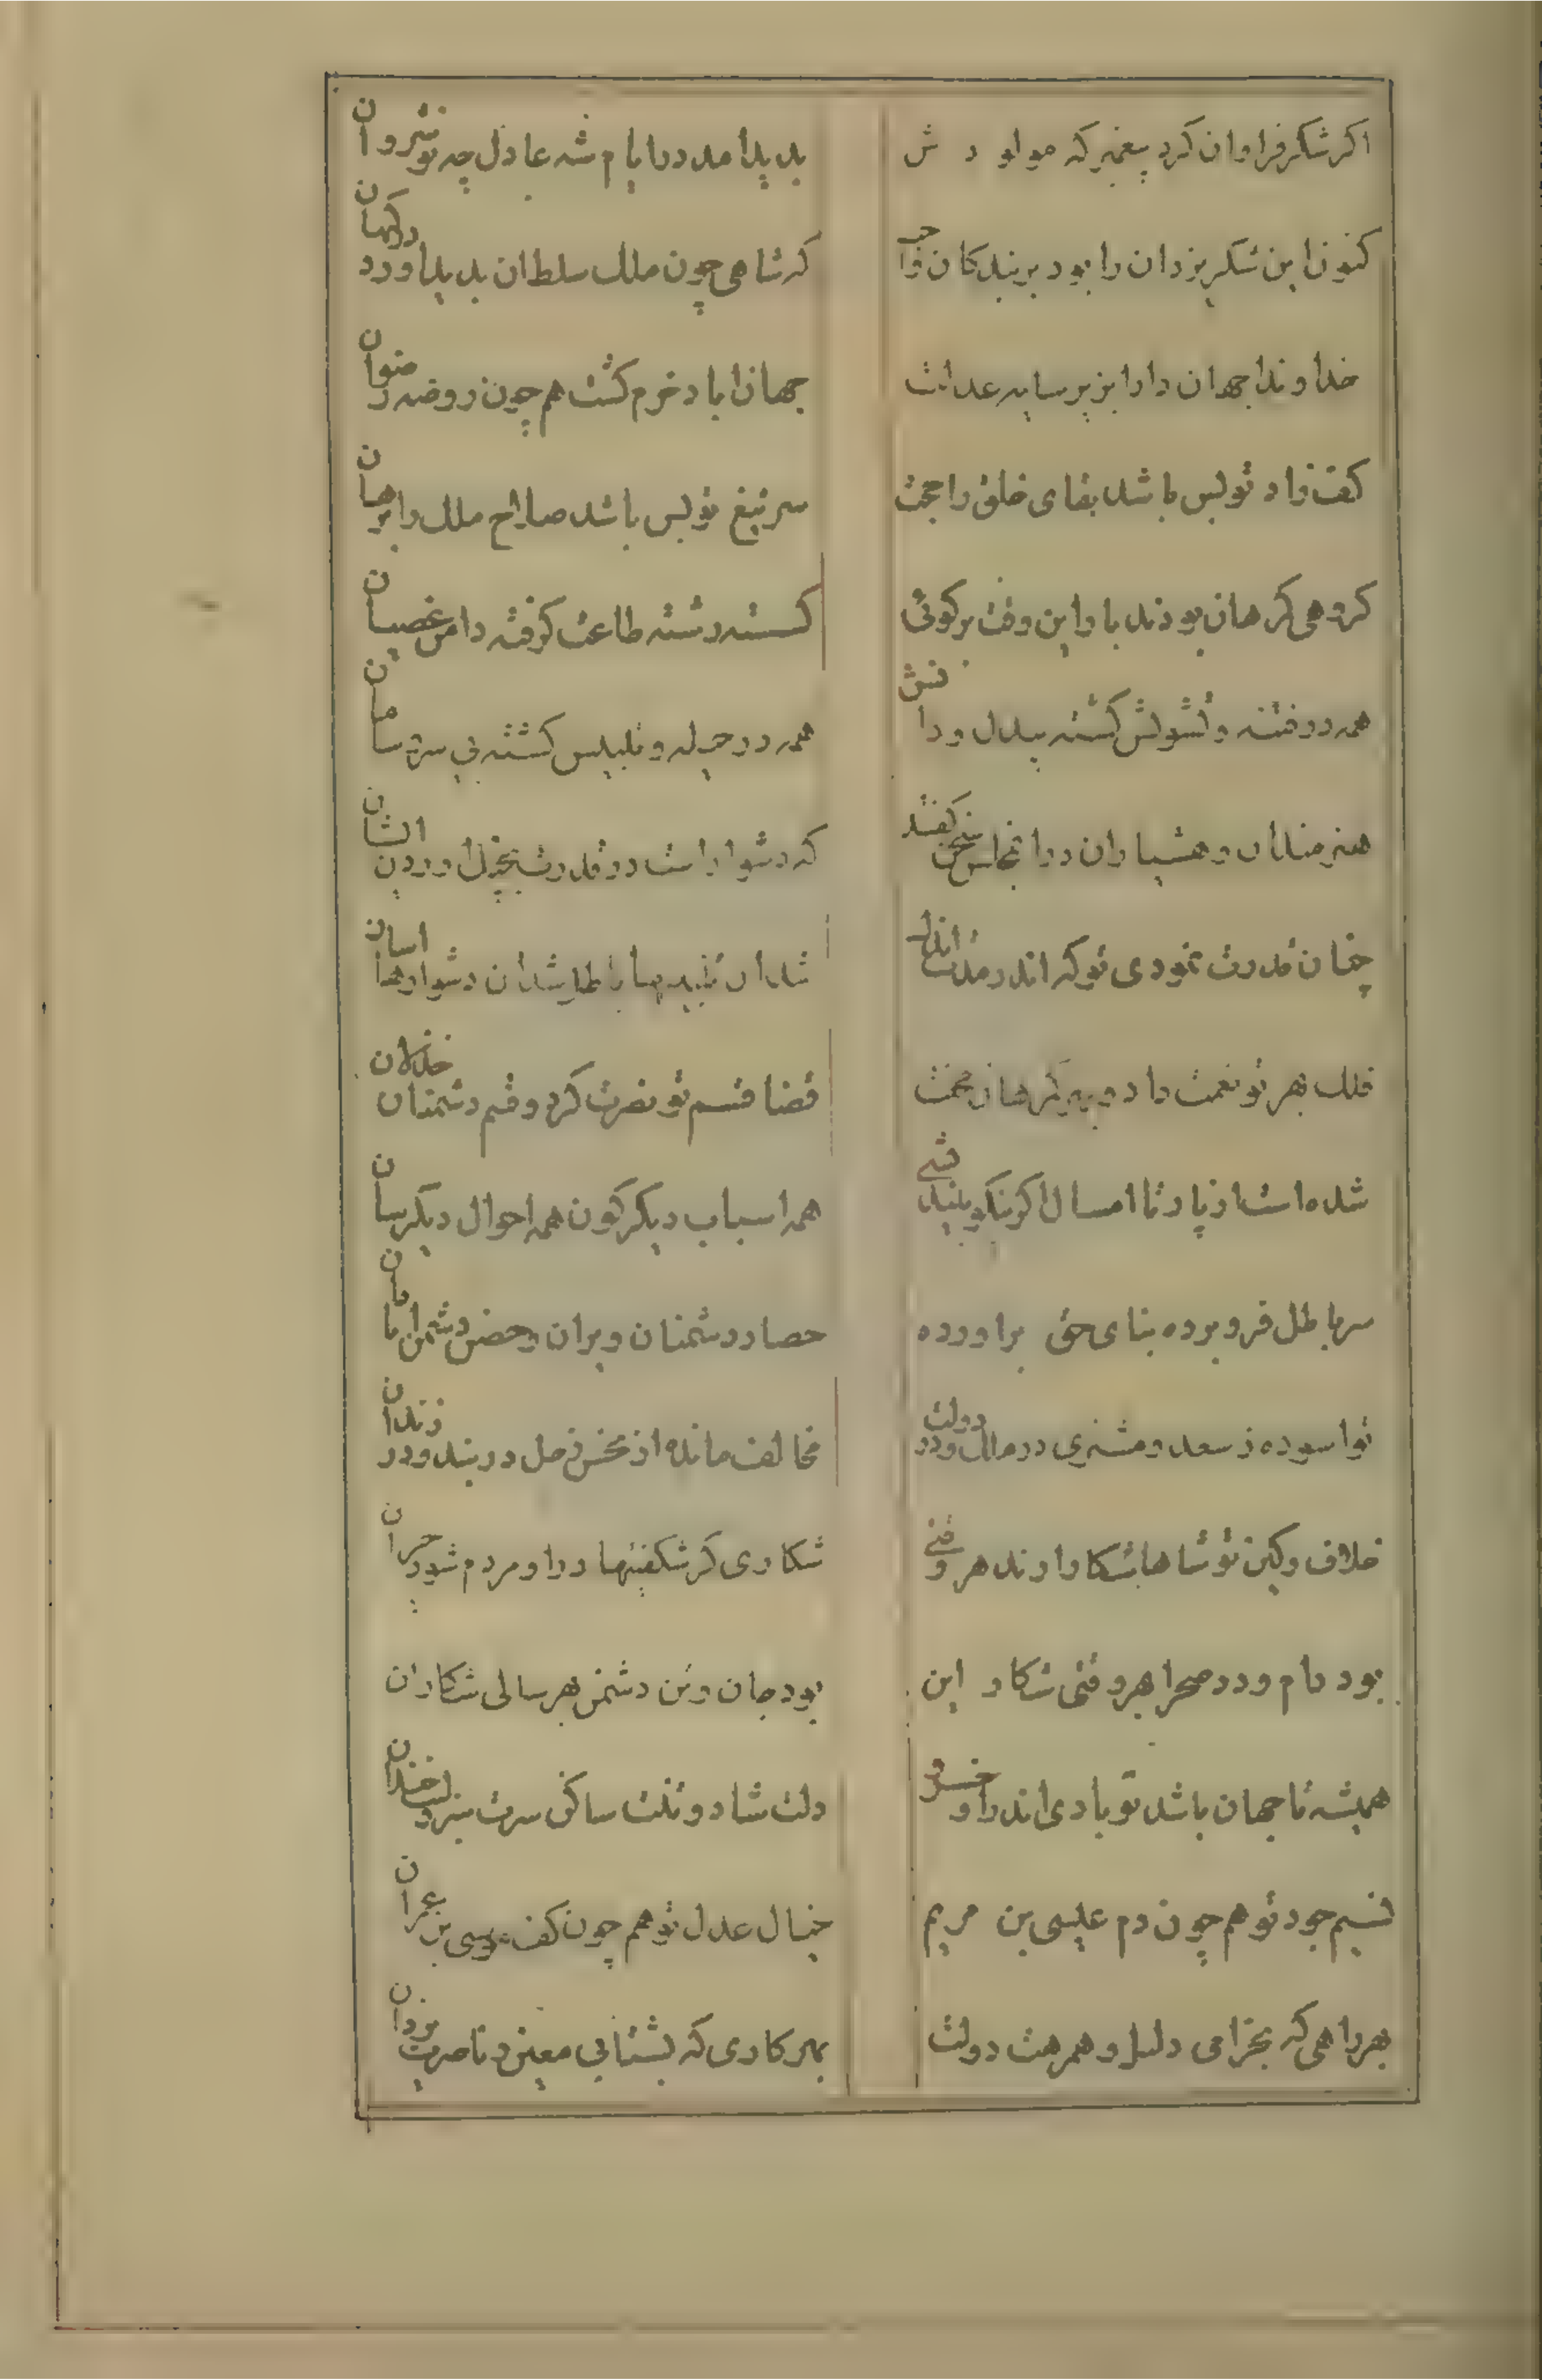 اکر شکر فراوان کرد پیغمبر که مولودش
بدید آمد در ایام شه عادل چه نوشروان
کنون این شکر یزدان را بود بر بندکان واجب
که شاهی چون ملک سلطان بدید آورد در کیهان
خداوندا جهان دارا بزیر سایه عدلت
جهان آباد خرم کشت هم چون روضه رضوان
کف راد تو بس باشد بقای خلق را حجت
سر تیغ تو بس باشد صلاح ملک را برهان
کروهی کز هان بودند بار این وقت بر کوئی
کسسته رشته طاعت کرفته دامن عصیان
همه در فتنه و تشویش کشته بیدل و دانش
همه در حیله و تلبیس کشته بی سر و سامان
هنرمندان و هشیاران در انجا بس سخن کفتند
که دشوار است در قدرت بچنک آوردن ایشان
چنان قدرت نمودی تو که اندر مدت اندک
شد آن تلبیسها باطل شد آن دشوارها آسان
فلک بهر تو نعمت داد و بهر دیکران محنت
قضا قسم تو نصرت کرد و قسم دشمنان خذلان
شده است از پار تا امسال اکر نیکو ببیند شی
همه اسباب دیکر کون همه احوال دیکر سان
سر باطل فرو برده بنای حق براورده
حصار دشمنان ویران و حصن دشمن آبادان
تو آسوده ز سعد و مشتری در ملک و در دولت
مخالف مانده از نحس زحل در بند و در زندان
خلاف و کین تو شاها شکار آرند هر وقتی
شکاری کز شکفتیها در او مردم شود حیران
بود دام و دد صحرا هر وقتی شکار این
بود جان و تن دشمن بهر سالی شکار آن
همیشه تا جهان باشد تو بادی اندر او خسرو
دلت شاد و تنت ساکن سرت سبز و لبت خندان
نسیم جود تو هم چون دم عیسی بن مریم
خیال عدل تو هم چون کف موسی بن عمران
بهر راهی که بخرامی دلیل و همرهت دولت
بهر کاری که بشتابی معین و ناصرت یزدان